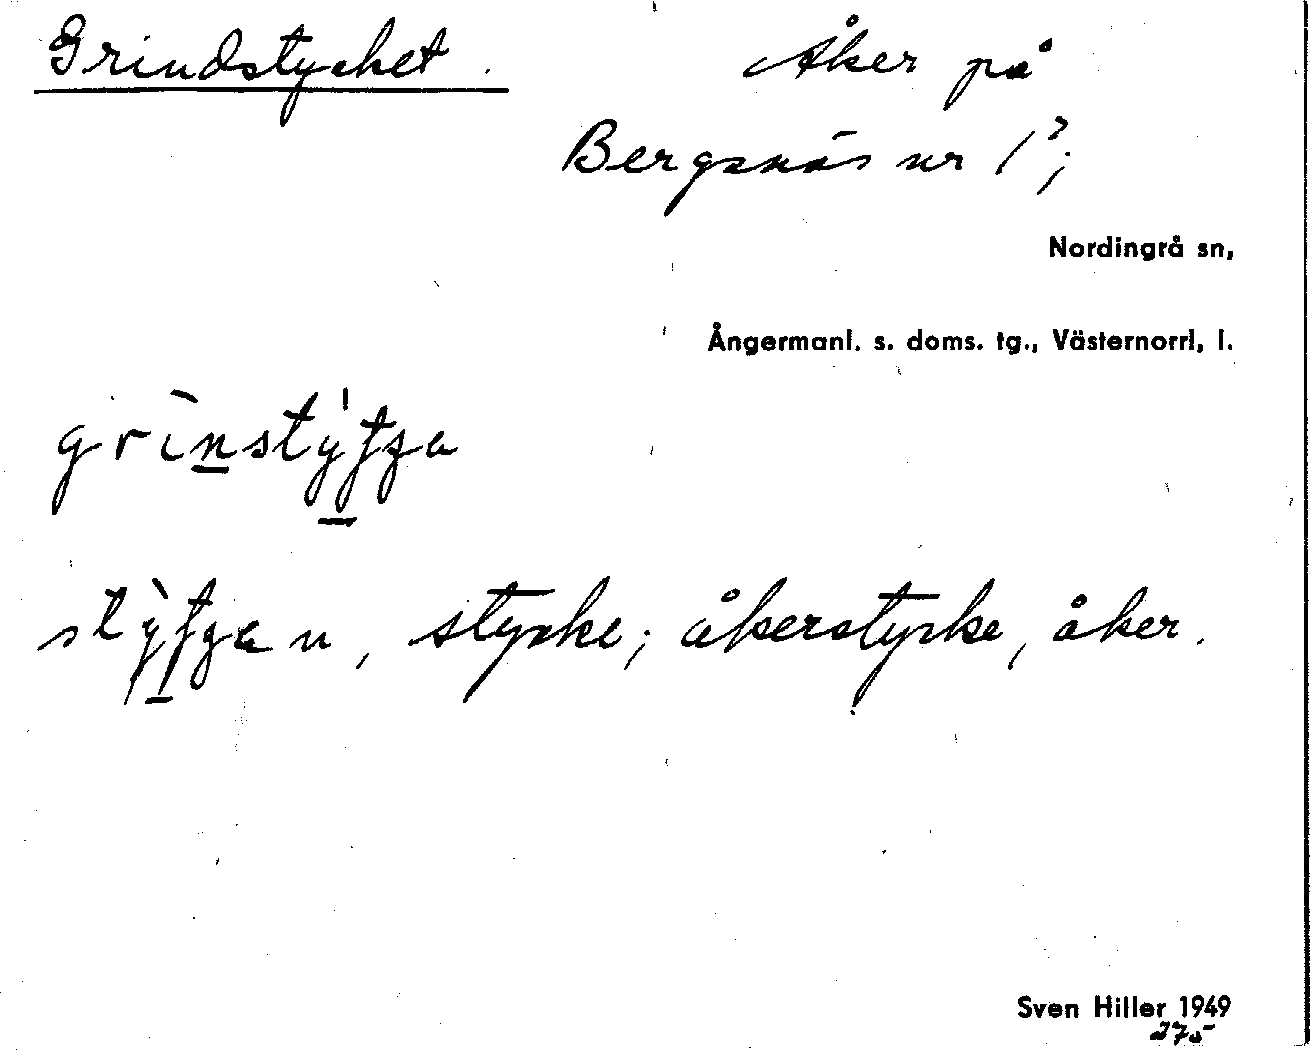 Grindstycket.
Åker på
Bergsnäs nr 1³;
Nordingrå sn,
Ångermanl. s. doms. tg., Västernorrl, l.
stycke; åkerstycke, åker.
Sven Hiller 1949
275